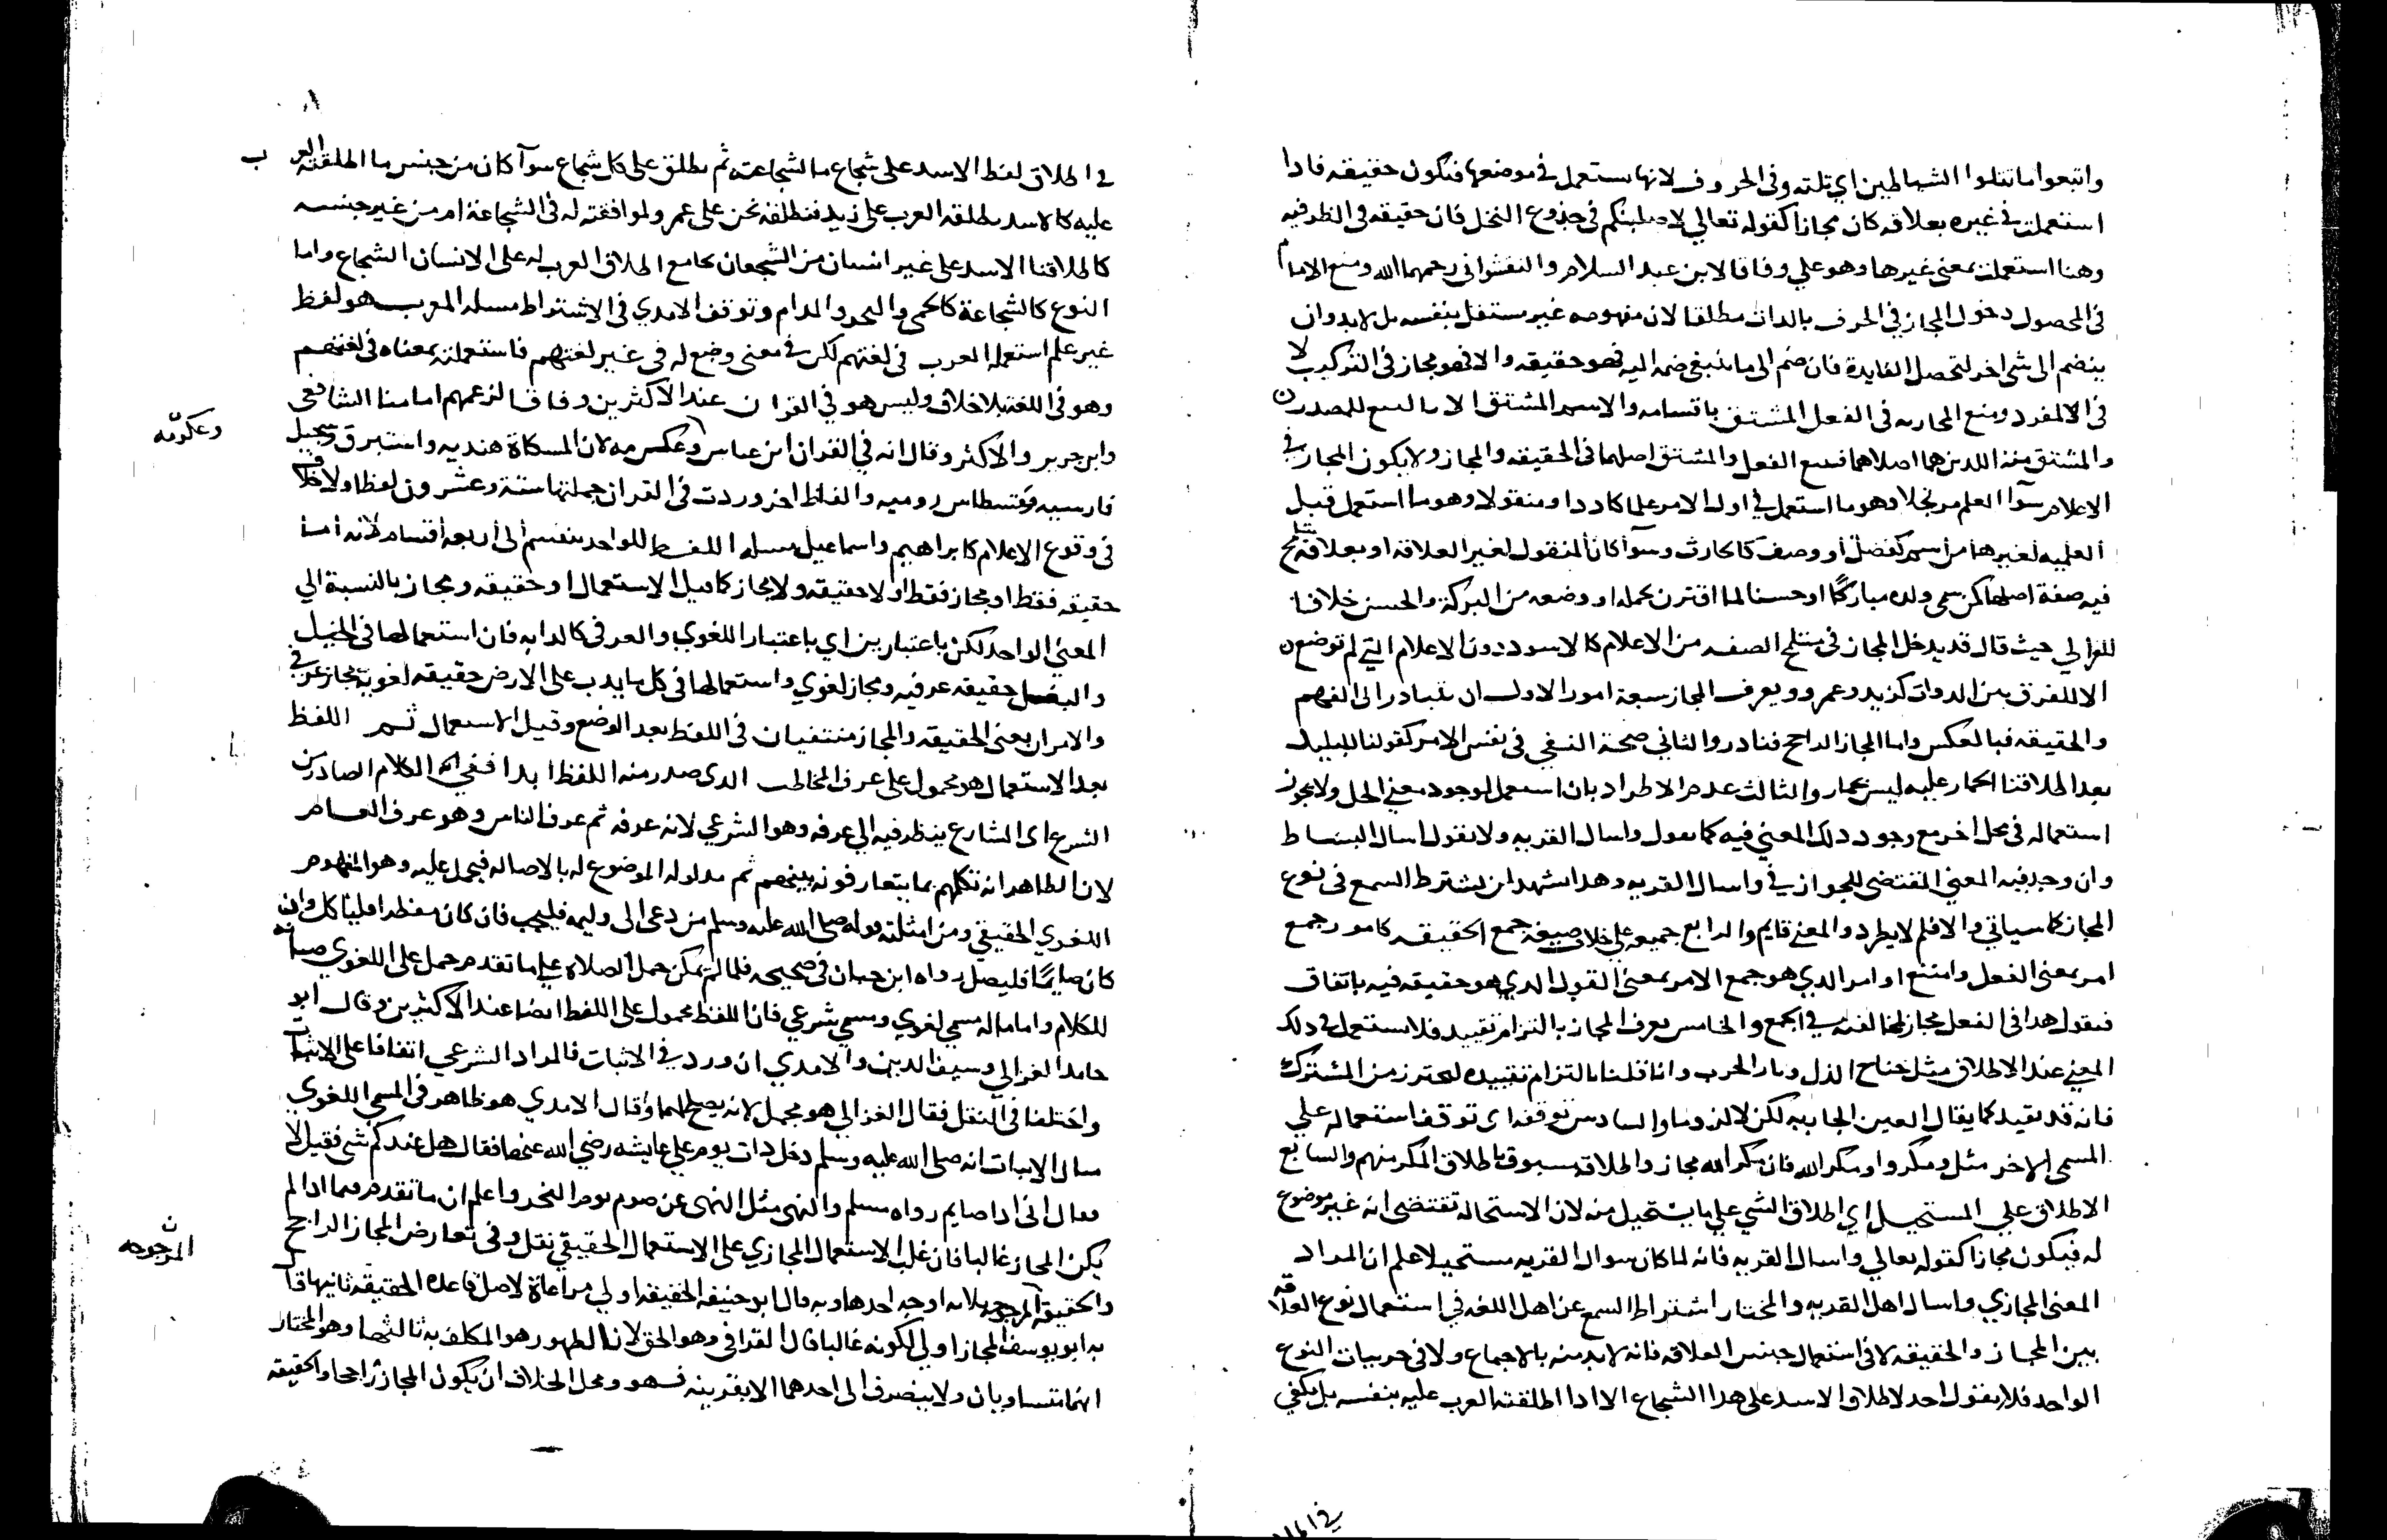 واتبعوا ما تتلوا الشياطين اي تلته وفي الحروف لانها تستعمل في موضعها فتكون حقيقه فاذا
استعملت في غيره بعلاقه كان مجازا كقوله تعالي لاصلبنكم في جذوع النخل فان حقيقه في الظرفيه
وهنا استعملت بمعنى غيرها وهو علي وفاقا لابن عبد السلام والنقشواني رحمهما الله ومنع الامام
في المحصول دخول المجاز في الحرف بالذات مطلقا لان مفهومه غير مستقل بنفسه بل لا بد وان
ينضم الى شي اخر لتحصل الفايدة فان ضم الى ما ينبغي ضمه اليه فهو حقيقه والا فهو مجاز في التركيب لا
في المفرد ومنع المجاز في الفعل المشتق باقسامه والاسم المشتق الا بالتبع للمصدر
والمشتق منه اللذين هما اصلاهما فيتبع الفعل والمشتق اصلهما في الحقيقه والمجاز ولا يكون المجاز في
الاعلام سوآ العلم مرتجلا وهو ما استعمل في اول الامر علما كادد او منقولا وهو ما استعمل قبل
العلميه لغيرها من اسم كفضل او وصف كالحارث وسوآ كان المنقول لغير العلاقه او بعلاقه
فيه صفة اصلها كمن سمى ولده مباركًا او حسنا لما اقترن بحمله او وضعه من البركة والحسن خلافا
للغزالي حيث قال قد يدخل المجاز في متلمح الصفه من الاعلام كالاسود دون الاعلام التي لم توضع
الا للفرق بين الدوات كزيد وعمرو ويعرف المجاز سبعة امور الاول ان يتبادر الى الفهم
والحقيقه فبالعكس واما المجاز الراجح فنادر والثاني صحة النفي في نفس الامر كقولنا للبليد
بعد اطلاقنا الحمار عليه ليس بحمار والثالث عدم الاطراد بان استعمل لوجود معنى المحل ولا يجوز
استعماله في محل اخر مع وجود ذلك المعنى فيه كما نقول واسال القريه ولا نقول اسال البساط
وان وجد فيه المعنى المقتضى للجواز في واسال القريه وهذا يشهد ان يشترط السمع في نوع
المجاز كما سياتي والا فلم لا يطرد والمعنى قايم والرابع جمعه على خلاف صيغة جمع الحقيقه كامور جمع
امر بمعنى الفعل وامتنع اوامر الذي هو جمع الامر بمعنى القول الذي هو حقيقه فيه باتفاق
فنقول هذا في الفعل مجاز لمخالفته في الجمع والخامس يعرف المجاز بالتزام تقييد فلا يستعمل في ذلك
المعنى عند الاطلاق مثل جناح الذل ونار الحرب وانا قلنا بالتزام تقييده ليحترز من المشترك
فانه قد يقيد كما يقال العين الجاريه لكن لا لزوما والسادس توقفه اى توقف استعماله علي
المسمى الاخر مثل ومكروا ومكر الله فان مكر الله مجاز واطلاقه مسبوق باطلاق المكر منهم والسابع
الاطلاق علي المستحيل اي اطلاق الشي علي ما يستحيل منه لان الاستحالة تقتضى انه غير موضوع
له فيكون مجازا كقوله تعالي واسال القريه فانه لما كان سوال القريه مستحيلا علم ان المراد
المعنى المجازي واسال اهل القريه والمختار اشتراط السمع عن اهل اللغه في استعمال نوع العلاقه
بين المجاز والحقيقه لا في استعمال جنس العلاقه فانه لا بد منه بالاجماع ولا في جزييات النوع
الواحد فلا يقول احد لاطلاق الاسد على هذا الشجاع الا اذا اطلقته العرب عليه بنفسه بل يكفي
في اطلا
٨
في اطلاق لفظ الاسد على شجاع ما الشجاعته ثم يطلق على كل شجاع سوآ كان من جنس ما اطلقته العرب
عليه كالاسد يطلقه العرب على زيد فنطلقه نحن على عمرو لموافقته له في الشجاعة ام من غير جنسه
كاطلاقنا الاسد على غير انسان من الشجعان بجامع اطلاق العرب له على الانسان الشجاع واما
النوع كالشجاعة كالحمى والبحر والمدام وتوقف الامدي في الاشتراط مسله المعرب هو لفظ
غير علم استعمله العرب في لغتهم لكن في معنى وضع له في غير لغتهم فاستعملته بمعناه في لغتهم
وهو في اللغة بلا خلاف وليس هو في القران عند الاكثرين وفاقا لزعمهم امامنا الشافعى
وابن جرير والاكثر وقال انه في القران ابن عباس وعكرمه لان المسكاة هنديه واستبرق وسجيل
فارسيه وقسطاس روميه والفاظ اخر وردت في القران جملتها ستة وعشرون لفظا ولا خلاف
في وقوع الاعلام كابراهيم واسماعيل مسله اللفظ للواحد ينقسم الى اربعة اقسام لانه اما
حقيقه فقط او مجاز فقط او لا حقيقه ولا مجاز كما قبل الاستعمال او حقيقه ومجاز بالنسبة الي
المعنى الواحد لكن باعتبارين اي باعتبار اللغوي والعرفى كالدابه فان استعمالها في الخيل
والبغال حقيقه عرفيه ومجاز لغوي واستعمالها في كل ما يدب على الارض حقيقه لغويه مجاز عرفي
والامران يعنى الحقيقه والمجاز منتفيان في اللفظ بعد الوضع وقبل الاستعمال ثم اللفظ
بعد الاستعمال هو محمول على عرف المخاطب الذي صدر منه اللفظ ابدا ففي الكلام الصادر من
الشرع اى الشارع ينظر فيه الي عرفه وهو الشرعي لانه عرفه ثم عرف الناس وهو عرف العام
لان الظاهر انه تكلهم بما يتعارفونه بينهم ثم مدلوله الموضوع له بالاصاله فيحمل عليه وهو المفهوم
اللغوي الحقيقي ومن امثلته قوله صلى الله عليه وسلم من دعى الى وليمه فليجب فان كان مفطرا فلياكل وان
كان صايمًا فليصل رواه ابن حبان في صحيحه فلما لم يمكن حمل الصلاه علي ما تقدم حمل على اللغوي صيانه
للكلام واما ما له مسمى لغوي ومسمى شرعي فان اللفظ محمول على اللفظ ايضا عند الاكثرين وقال ابو
حامد الغزالي وسيف الدين والامدي ان ورد في الاثبات فالمراد الشرعي اتفاقا على الاثبات
واختلفا في النقل فقال الغزالي هو مجمل لانه يصلح لهما وقال الامدي هو ظاهر في المسمى اللغوي
مثال الاثبات انه صلى الله عليه وسلم دخل ذات يوم علي عايشه رضي الله عنها فقال هل عندكم شي فقيل لا
فقال انى اذا صايم رواه مسلم والنهى مثل النهى عن صوم يوم النحر واعلم ان ما تقدم فيما اذا لم
يكن المجاز غالبا فان غلب الاستعمال المجازي على الاستعمال الحقيقي نقل وفى تعارض المجاز الراجح
والحقيقه المرجوحه ثلاثه اوجه احدها وبه قال ابو حنيفه الحقيقه اولي مراعاة لاصل قاعده الحقيقه ثانيها قال
به ابو يوسف المجاز اولي لكونه غالبا قال القرافى وهو الحق لان الظهور هو المكلف به ثالثها وهو المختار
انهما متساويان ولا ينصرف الى احدهما الا بقرينه فهو ومحل الخلاف ان يكون المجاز راجحا والحقيقه
وعكرمه
ن
المرجوحه